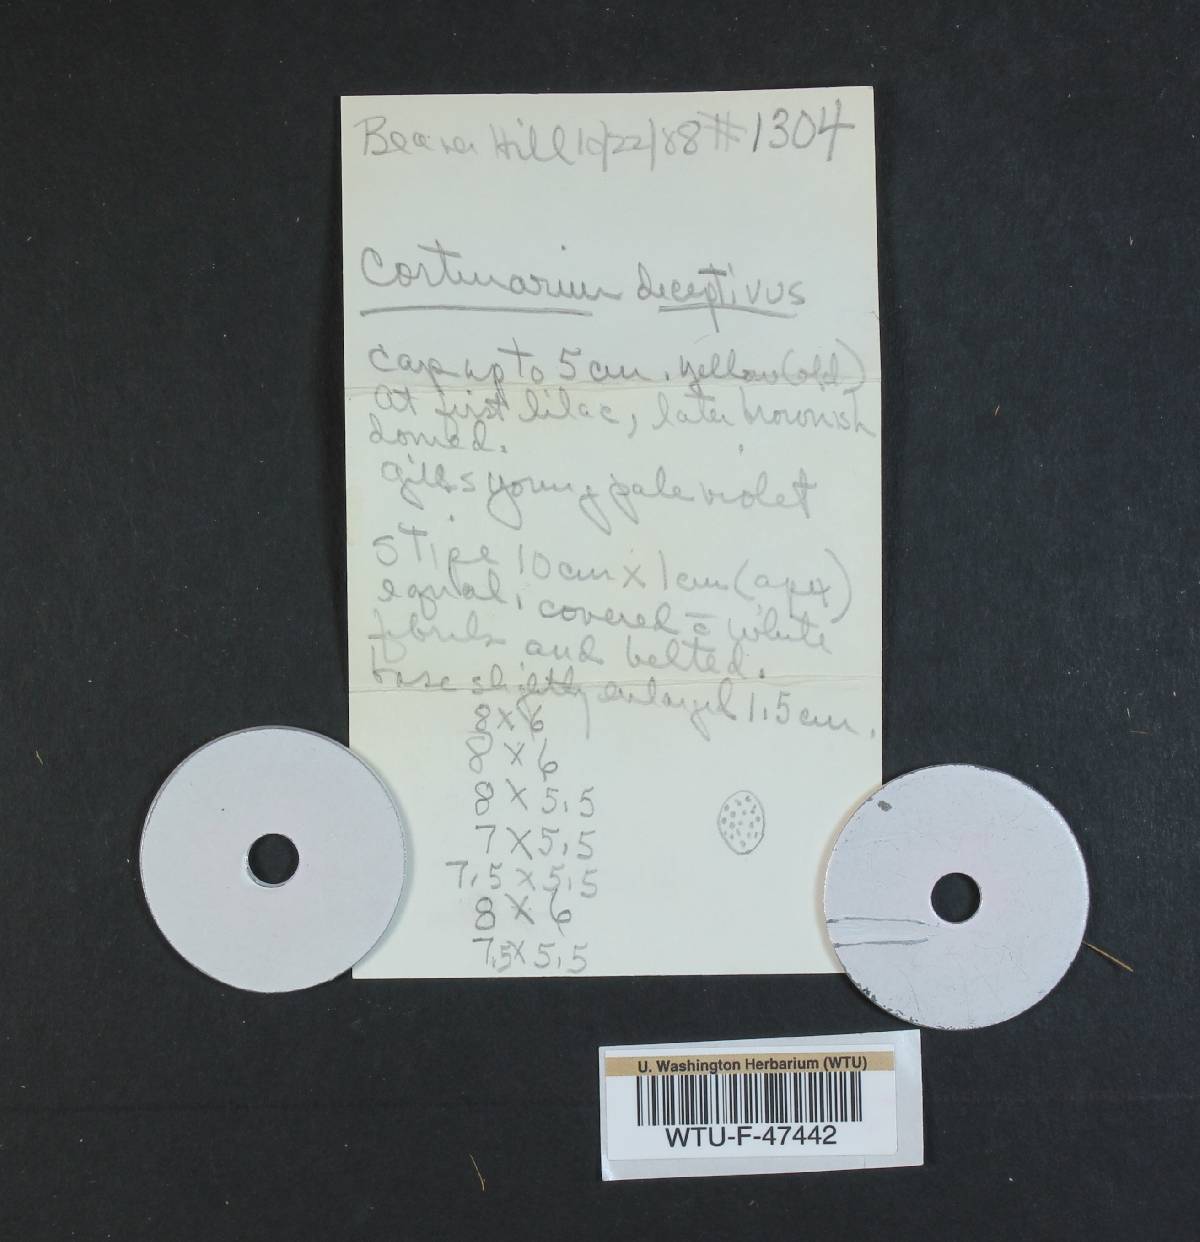 Beaver Hill 10/22/88 #1304
Cortinarius deceptivus
cap up to 5 cm. yellow (old)
at first lilac, later brownish
domed.
gills young pale violet
stipe 10 cm x 1 cm (apex)
equal, covered c̄ white
fibrils and belted.
base slightly enlarged 1.5 cm.
8 x 6
8 x 6
8 x 5.5
7 x 5.5
7.5 x 5.5
8 x 6
7.5 x 5.5
U. Washington Herbarium (WTU)
WTU-F-47442